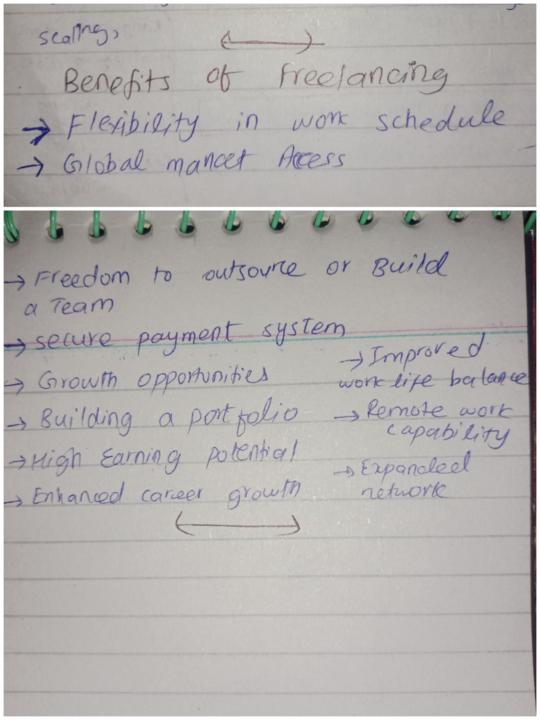 scaling,
Benefits of Freelancing
→ Flexibility in work schedule
→ Global market Access
→ Freedom to outsource or Build
a Team
→ secure payment system
→ Growth opportunities
→ Building a portfolio
→ High Earning potential
→ Enhanced career growth
→ Improved
work life balance
→ Remote work
capability
→ Expanded
network